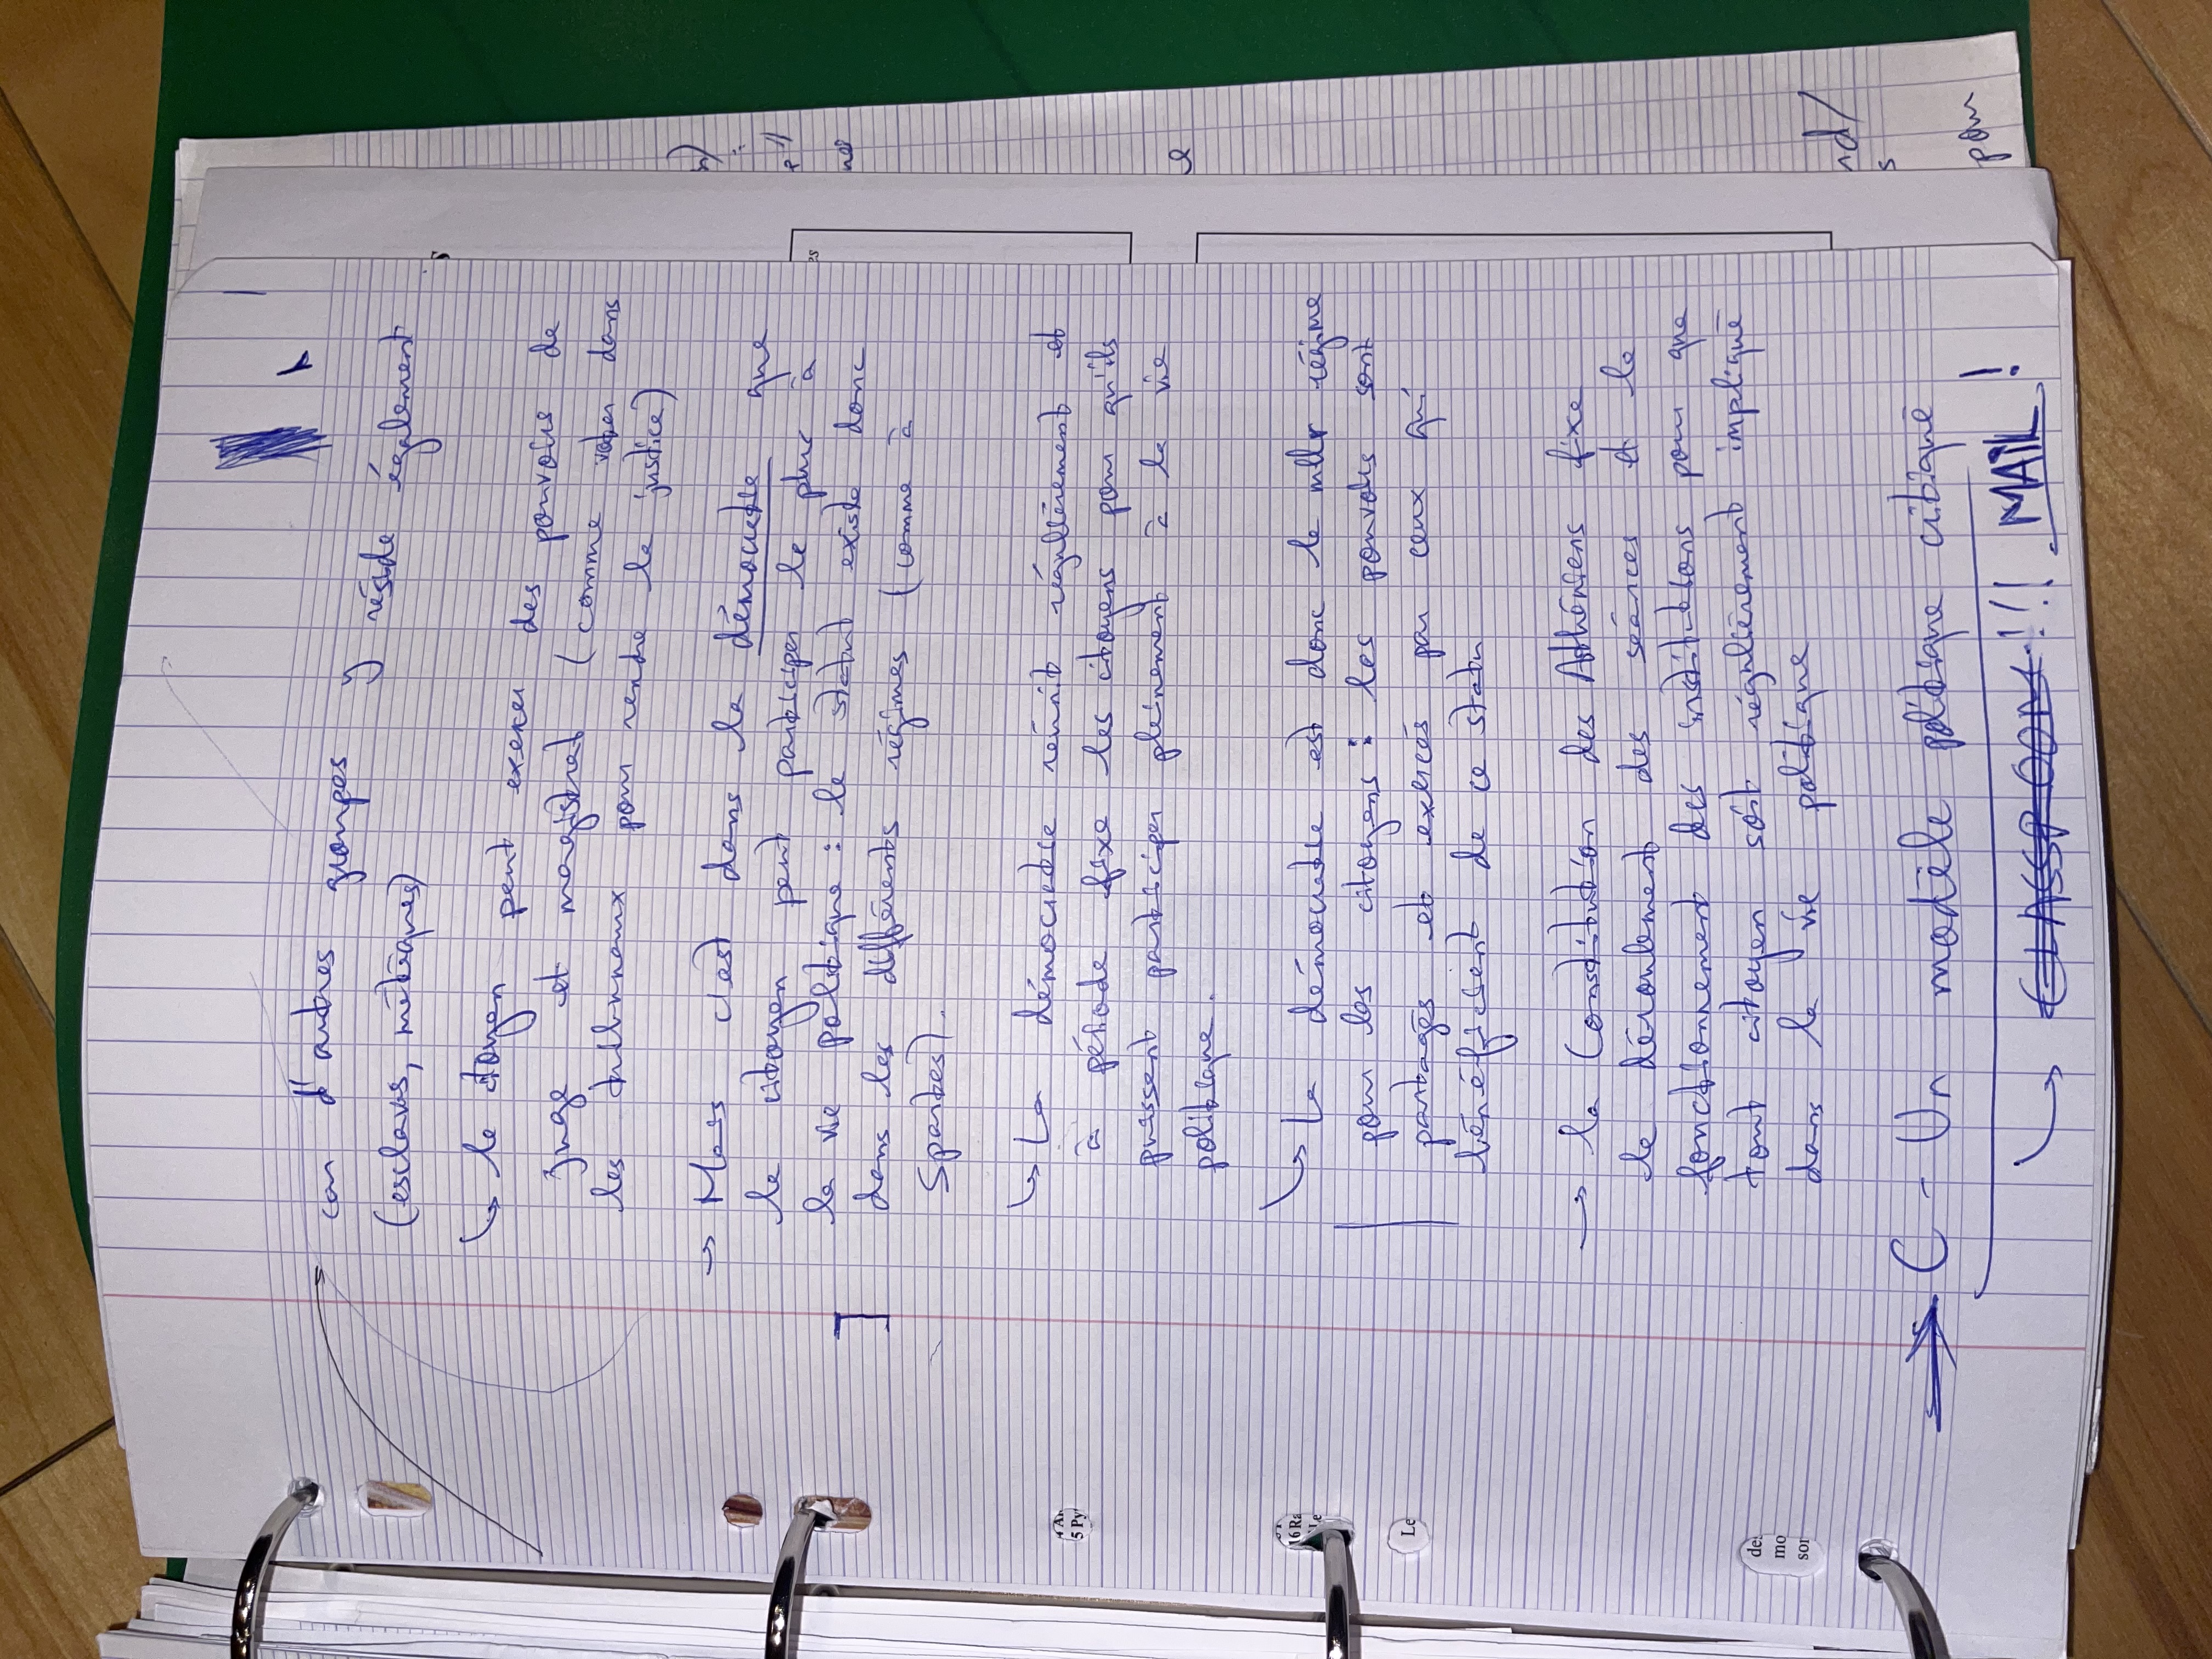 car d'autres groupes y réside également
(esclaves, métèques)
↪ le citoyen peut exercer des pouvoirs de
Juge et magistrat (comme voter dans
les tribunaux pour rendre la justice)
→ Mais c'est dans la démocratie que
le citoyen peut participer le plus à
la vie politique : le statut existe donc
dans les différents régimes (comme à
Spartes).
↪ La démocratie réunit régulièrement et
à période fixe les citoyens pour qu'ils
puissent participer pleinement à la vie
politique.
↪ La démocratie est donc le mllr régime
pour les citoyens : les pouvoirs sont
partagés et exercés par ceux qui
bénéficient de ce statu
→ la Constitution des Athéniens fixe
le déroulement des séances et le
fonctionnement des institutions pour que
tout citoyen soit régulièrement impliqué
dans la vie politique
→ C - Un modèle politique critiqué
↪ CLASSROOM !!! . MAIL !
n)
ne
e
nd/
s
pour
es
5 Py
16 Ra
Le
de
mo
sor